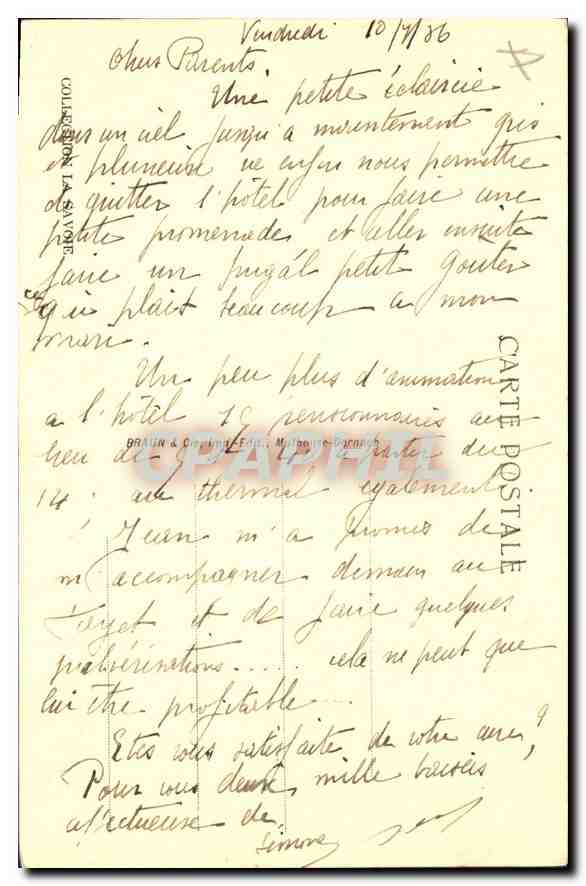 Vendredi 10/7/36
Chers Parents
Une petite éclaircie
dans un ciel jusqu'à maintenant gris
et pluvieux va enfin nous permettre
de quitter l'hôtel pour faire une
petite promenade et aller ensuite
faire un frugal petit goûter
qui plait beaucoup a mon
mari.
Un peu plus d'animation
a l'hôtel 19 pensionnaires au
lieu de 9 et 40 à partir du
14. au thermal également
Jean m'a promis de
m'accompagner demain au
Fayet et de faire quelques
pulvérisations..... cela ne peut que
lui être profitable...
Etes vous satisfaite de votre cure?
Pour vous deux, mille baisers
affectueuse de
Simone Jean
COLLECTION LA SAVOIE
CARTE POSTALE
BRAUN & Cie, Imp.-Edit., Mulhouse-Dornach
CPAPHIL